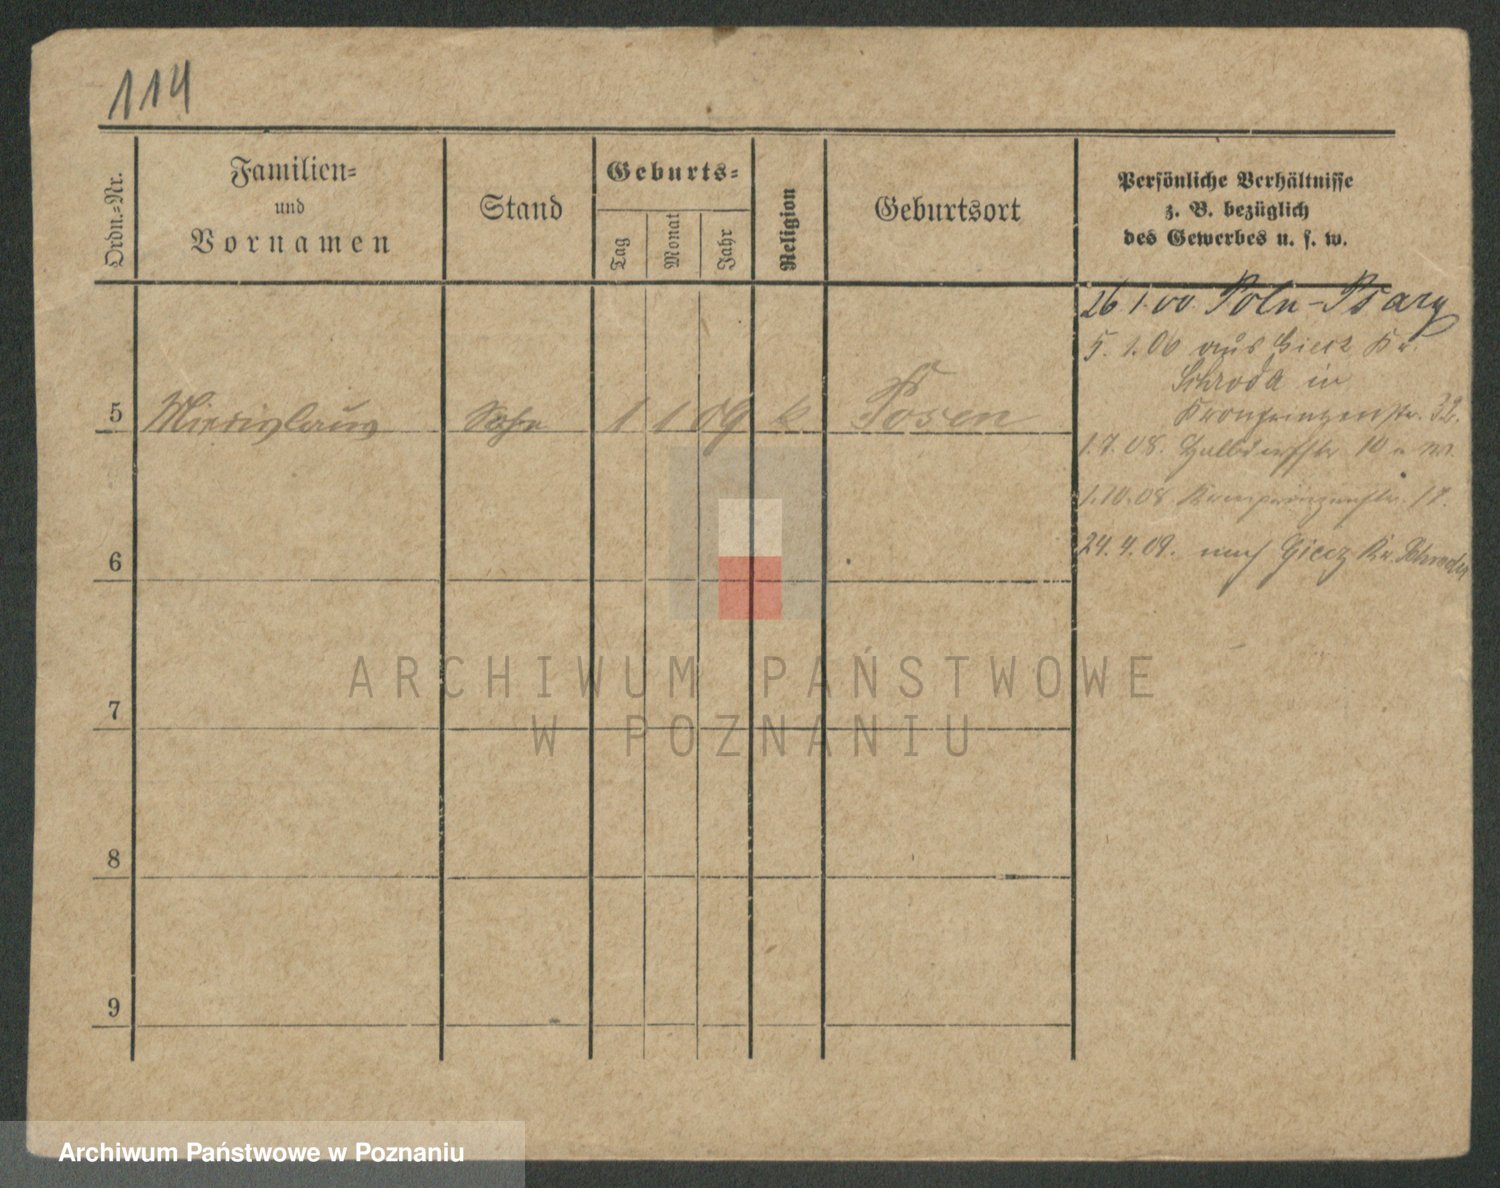 114
Ordn.-Nr.
Familien-
und
Vornamen
Stand
Geburts-
Tag
Monat
Jahr
Religion
Geburtsort
Persönliche Verhältnisse
z. B. bezüglich
des Gewerbes u. s. w.
26 1.00. Poln-Psary
5. 1.06 aus Giecz Kr.
Schroda in
Kronprinzenstr. 32.
5 Miecislaus Sohn 1 1 09 k. Posen
1.7.08. Halbdorfstr. 10
1.10.08 Kronprinzenstr. 17.
24.4.09. nach Giecz Kr. Schroda
6
7
8
9
ARCHIWUM PAŃSTWOWE
W POZNANIU
Archiwum Państwowe w Poznaniu